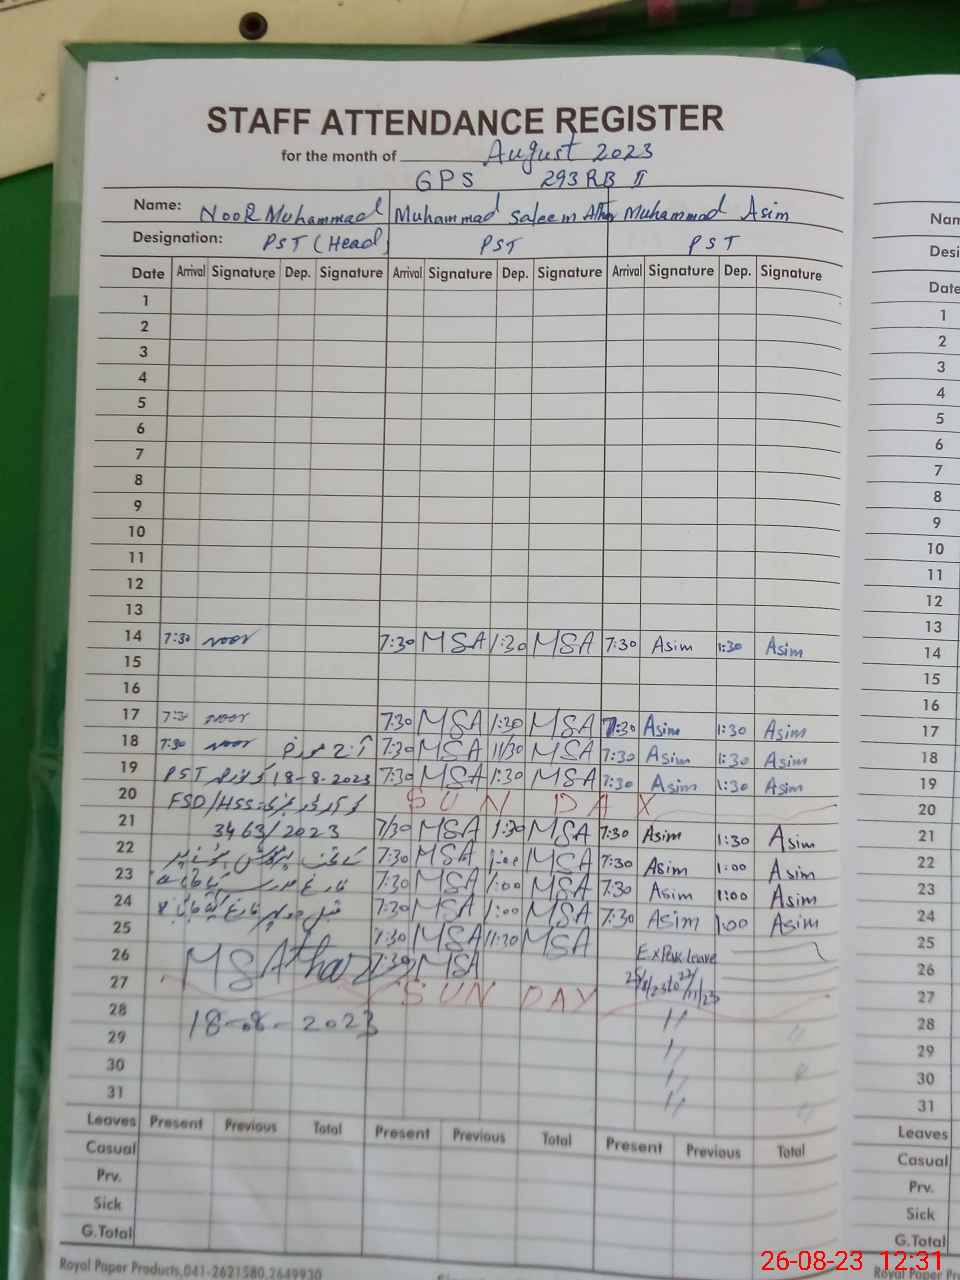 STAFF ATTENDANCE REGISTER
for the month of August 2023
GPS 293 RB II
Name: NooR Muhammad Muhammad Saleem Athar Muhammad Asim
Designation: PST (Head) PST PST
Date Arrival Signature Dep. Signature Arrival Signature Dep. Signature Arrival Signature Dep. Signature
1
2
3
4
5
6
7
8
9
10
11
12
13
14 7:30 noor 7:30 MSA 1:30 MSA 7:30 Asim 1:30 Asim
15
16
17 7:30 noor 7:30 MSA 1:30 MSA 7:30 Asim 1:30 Asim
18 7:30 noor 7:30 MSA 11/30 MSA 7:30 Asim 1:30 Asim
19 PST 18-8-2023 7:30 MSA 1:30 MSA 7:30 Asim 1:30 Asim
20 FSD/HSS SUNDAY
21 3463/2023 7/30 MSA 1:30 MSA 7:30 Asim 1:30 Asim
22 7:30 MSA 1:00 MSA 7:30 Asim 1:00 Asim
23 7:30 MSA 1:00 MSA 7:30 Asim 1:00 Asim
24 7:30 MSA 1:00 MSA 7:30 Asim 1:00 Asim
25 7:30 MSA 11:30 MSA Ex Pak leave
26 MSAthar 7:30 MSA
27 SUNDAY
28 18-08-2023 11
29 11
30 11
31 11
Leaves Present Previous Total Present Previous Total Present Previous Total
Casual
Prv.
Sick
G.Total
Royal Paper Products,041-2621580,2649930
Date
1
2
3
4
5
6
7
8
9
10
11
12
13
14
15
16
17
18
19
20
21
22
23
24
25
26
27
28
29
30
31
Leaves
Casual
Prv.
Sick
G.Total
Royal Paper
26-08-23 12:31